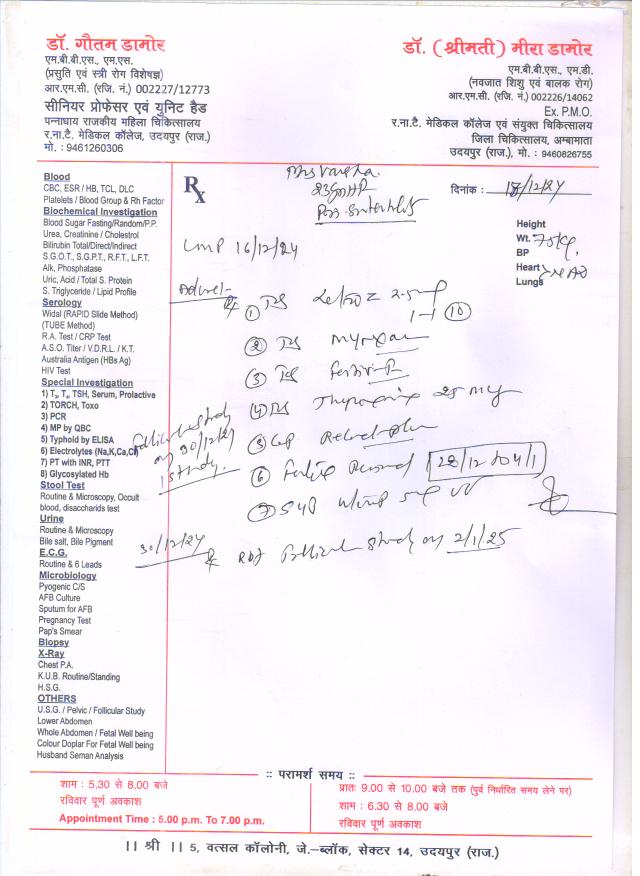 डॉ. गौतम डामोर
एम.बी.बी.एस., एम.एस.
(प्रसुति एवं स्त्री रोग विशेषज्ञ)
आर.एम.सी. (रजि. नं.) 002227/12773
सीनियर प्रोफेसर एवं युनिट हैड
पन्नाधाय राजकीय महिला चिकित्सालय
र.ना.टै. मेडिकल कॉलेज, उदयपुर (राज.)
मो. : 9461260306
डॉ. (श्रीमती) मीरा डामोर
एम.बी.बी.एस., एम.डी.
(नवजात शिशु एवं बालक रोग)
आर.एम.सी. (रजि. नं.) 002226/14062
Ex. P.M.O.
र.ना.टै. मेडिकल कॉलेज एवं संयुक्त चिकित्सालय
जिला चिकित्सालय, अम्बामाता
उदयपुर (राज.), मो. : 9460826755
Blood
CBC, ESR / HB, TCL, DLC
Platelets / Blood Group & Rh Factor
Biochemical Investigation
Blood Sugar Fasting/Random/P.P.
Urea, Creatinine / Cholestrol
Bilirubin Total/Direct/Indirect
S.G.O.T., S.G.P.T., R.F.T., L.F.T.
Alk, Phosphatase
Uric, Acid / Total S. Protein
S. Triglyceride / Lipid Profile
Serology
Widal (RAPID Slide Method)
(TUBE Method)
R.A. Test / CRP Test
A.S.O. Titer / V.D.R.L. / K.T.
Australia Antigen (HBs Ag)
HIV Test
Special Investigation
1) T₃, T₄, TSH, Serum, Prolactive
2) TORCH, Toxo
3) PCR
4) MP by QBC
5) Typhoid by ELISA
6) Electrolytes (Na,K,Ca,Cl)
7) PT with INR, PTT
8) Glycosylated Hb
Stool Test
Routine & Microscopy, Occult
blood, disaccharids test
Urine
Routine & Microscopy
Bile salt, Bile Pigment
E.C.G.
Routine & 6 Leads
Microbiology
Pyogenic C/S
AFB Culture
Sputum for AFB
Pregnancy Test
Pap's Smear
Biopsy
X-Ray
Chest P.A.
K.U.B. Routine/Standing
H.S.G.
OTHERS
U.S.G. / Pelvic / Follicular Study
Lower Abdomen
Whole Abdomen / Fetal Well being
Colour Doplar For Fetal Well being
Husband Seman Analysis
Rx
Mrs Varsha
दिनांक : 18/12/24
Height
Wt. 70 kg
BP
Heart
Lungs
NAD
LMP 16/12/24
Advice-
① Tab Letroz 2.5 mg
1-1 ⑩
② Tab
③ Tab
④ Tab Thyroxine 25 mcg
⑤ Cap
⑥ Fertile Period 28/12 to 4/1
⑦
Follicular study
on 30/12/24
1 study.
30/12/24
Follicular study on 2/1/25
:: परामर्श समय ::
शाम : 5.30 से 8.00 बजे
रविवार पूर्ण अवकाश
Appointment Time : 5.00 p.m. To 7.00 p.m.
प्रातः 9.00 से 10.00 बजे तक (पुर्व निर्धारित समय लेने पर)
शाम : 6.30 से 8.00 बजे
रविवार पूर्ण अवकाश
|| श्री || 5, वत्सल कॉलोनी, जे.–ब्लॉक, सेक्टर 14, उदयपुर (राज.)